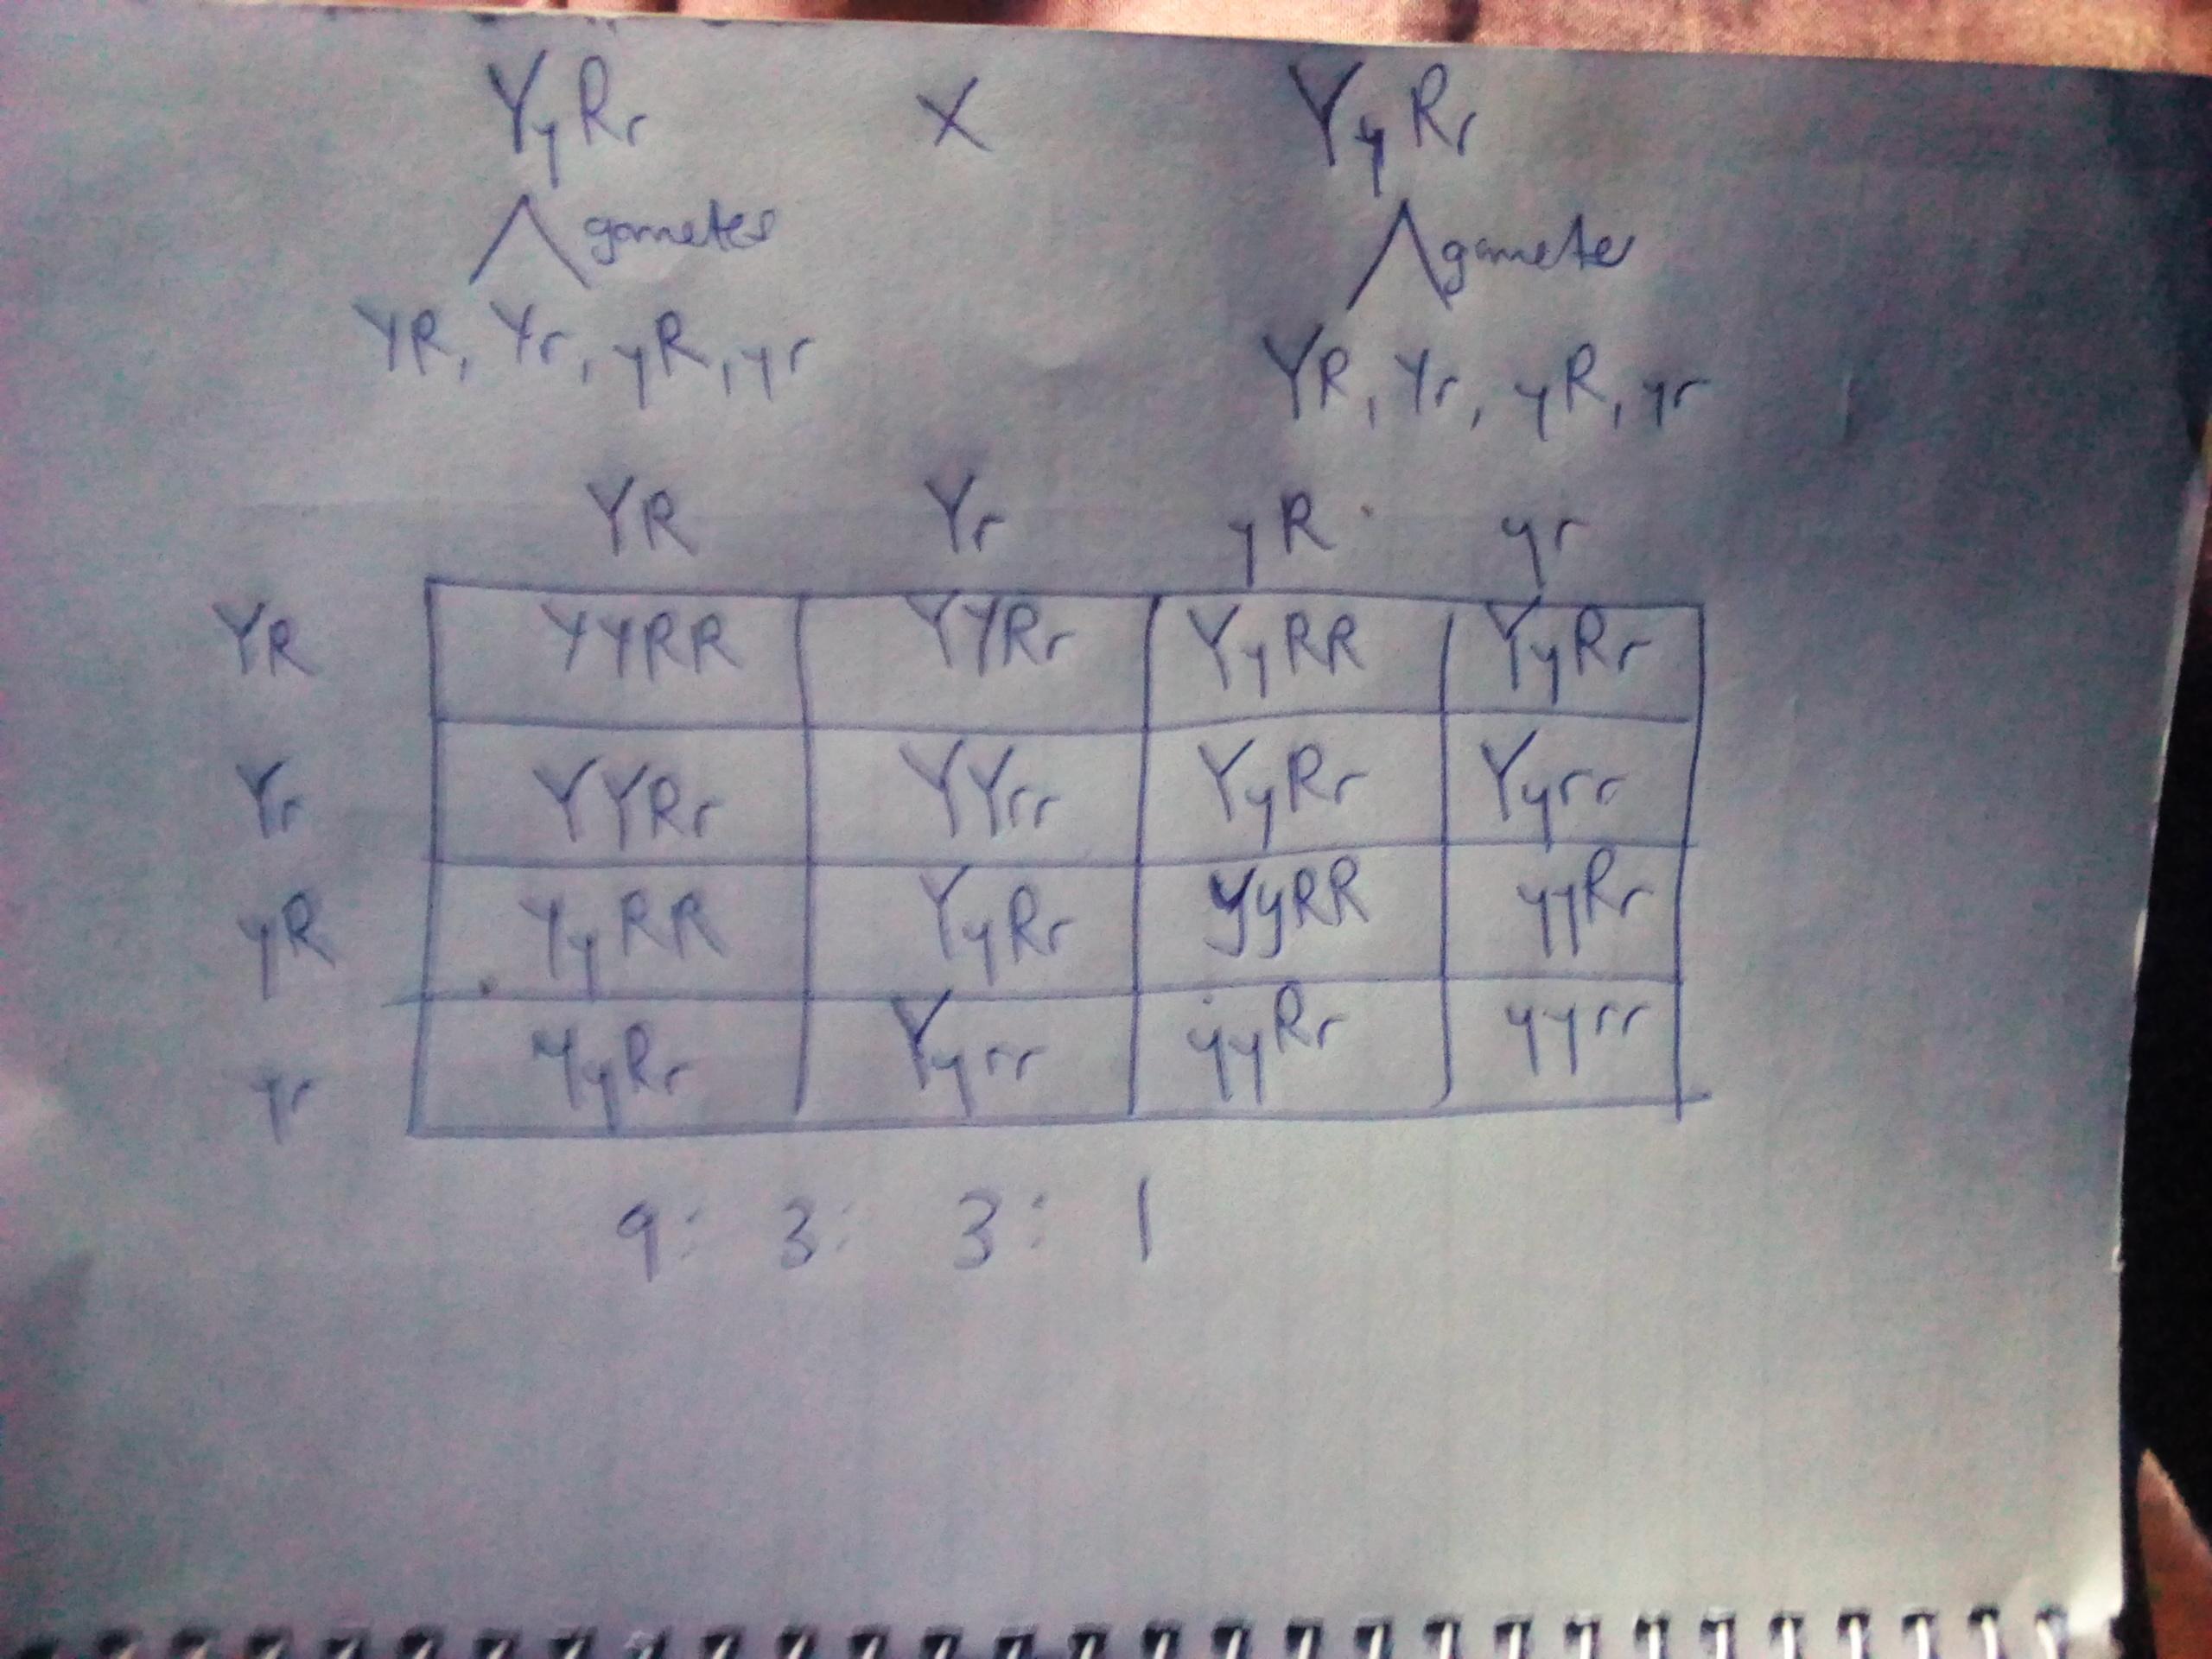 YyRr X YyRr
gametes gametes
YR, Yr, yR, yr YR, Yr, yR, yr
YR Yr yR yr
YR YYRR YYRr YyRR YyRr
Yr YYRr YYrr YyRr Yyrr
yR YyRR YyRr yyRR yyRr
yr YyRr Yyrr yyRr yyrr
9: 3: 3: 1